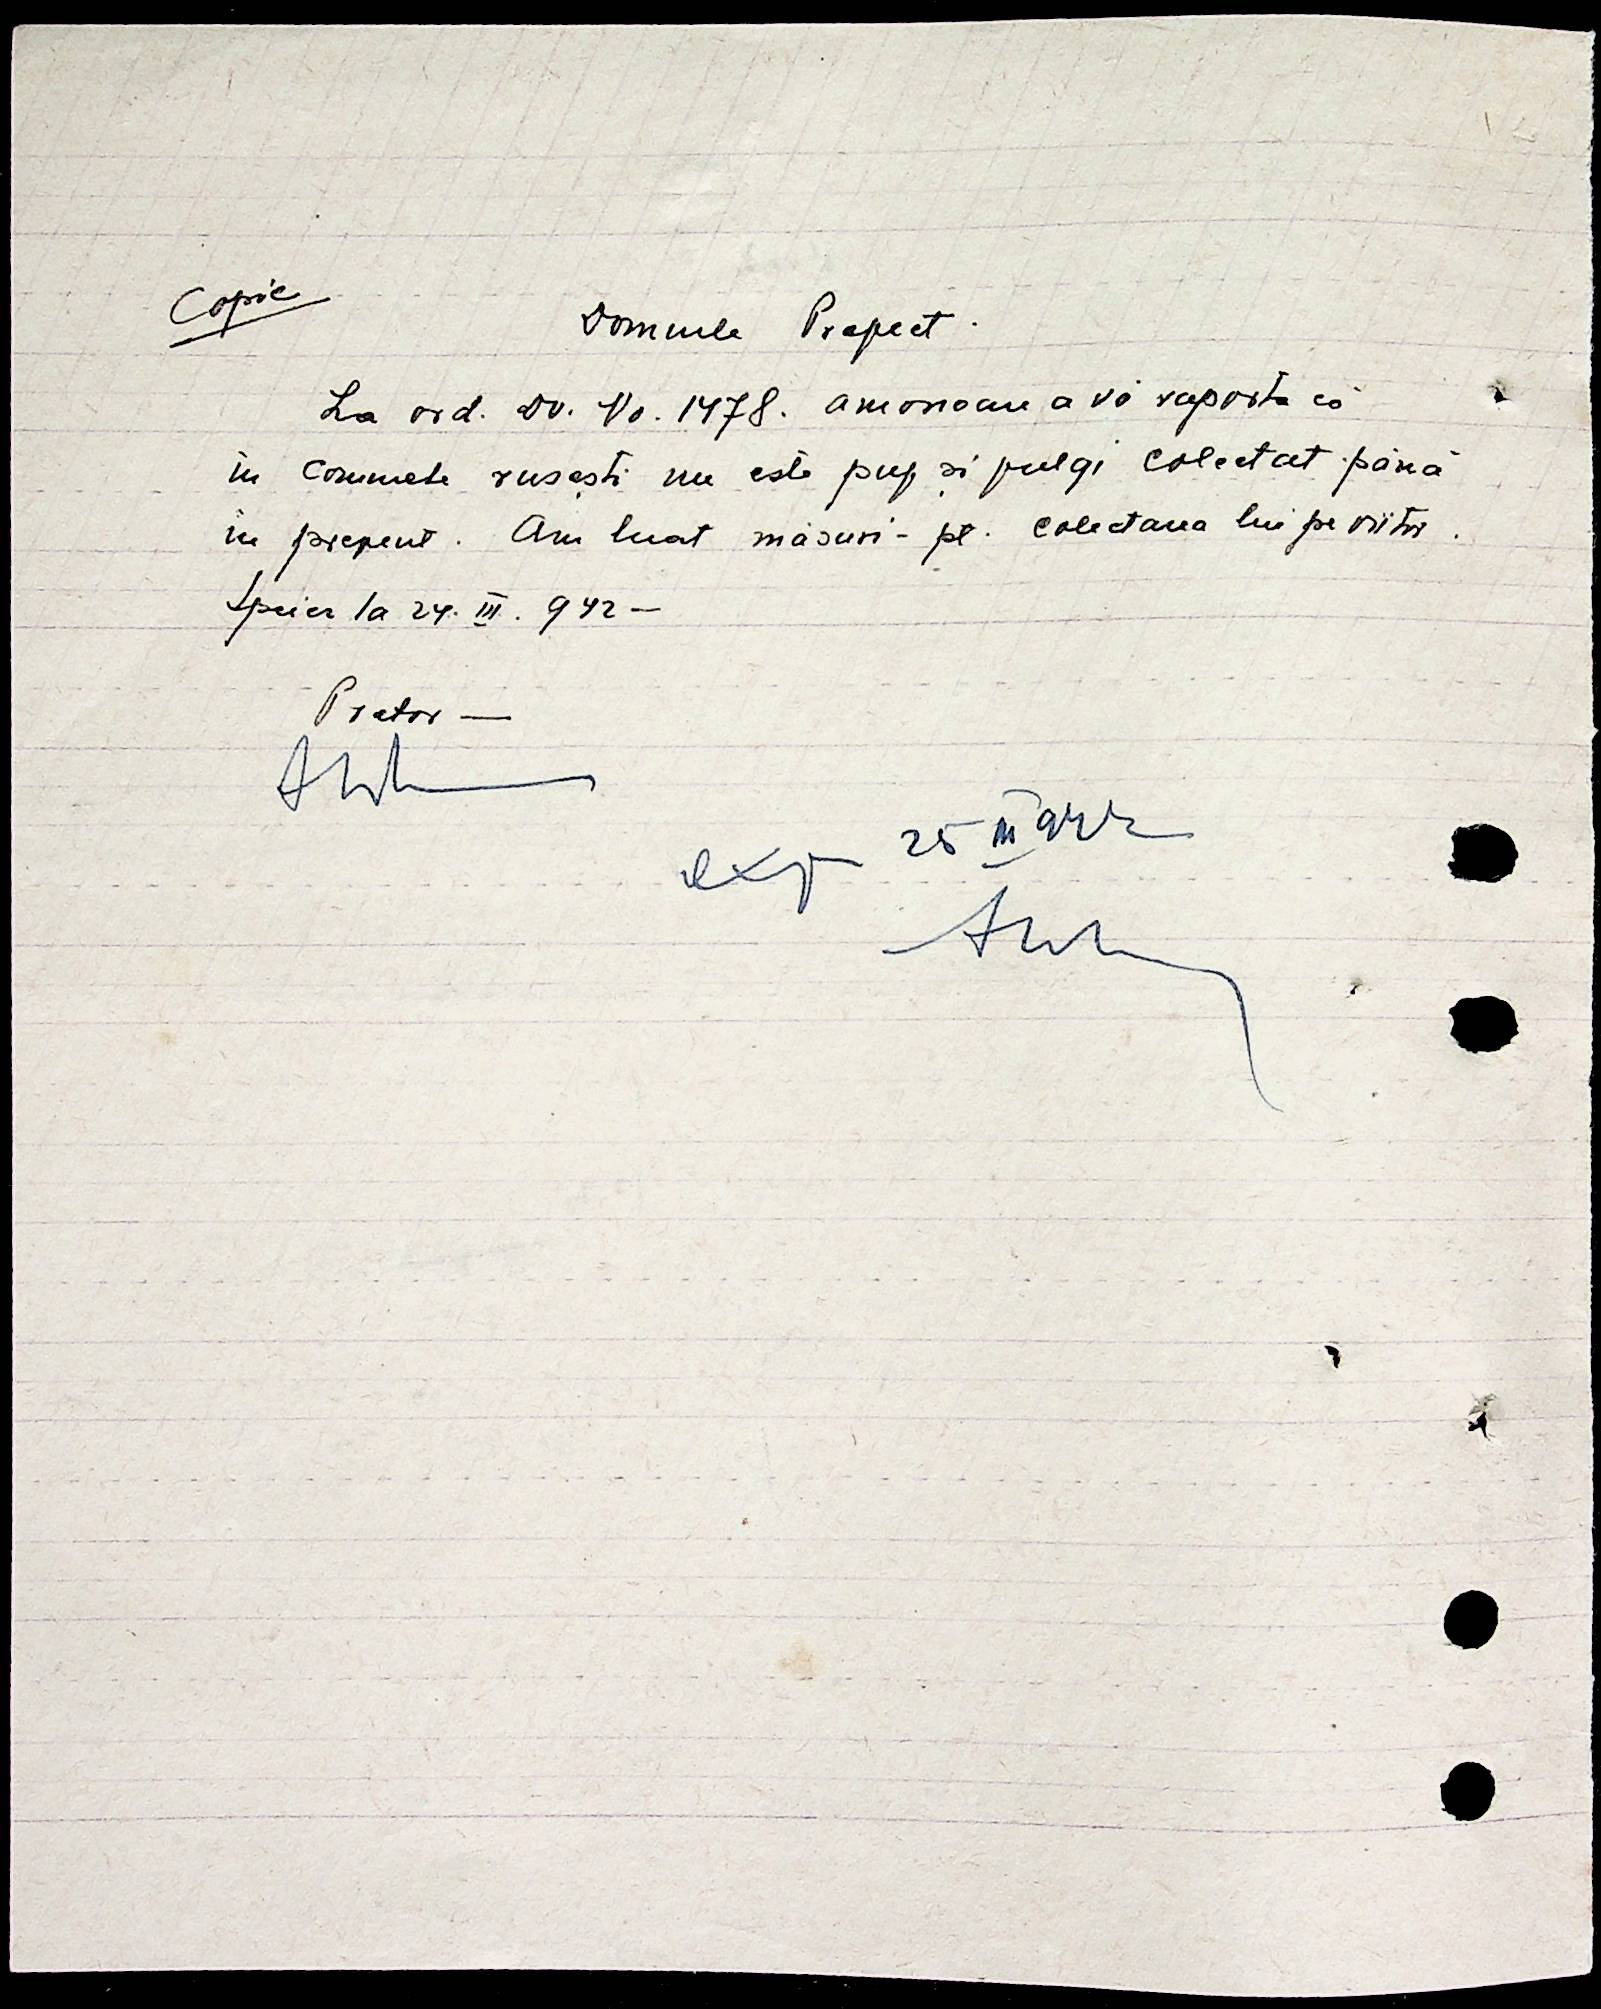 Copie
Domnule Prefect.
La ord. Dv. No. 1478. amonoare a vă raporta că
în comunele rusești nu este puf și fulgi colectat până
în prezent. Am luat măsuri - pt. colectarea lui pe viitor.
Speier la 24. III. 942 -
Pretor —
exp 25 III 942